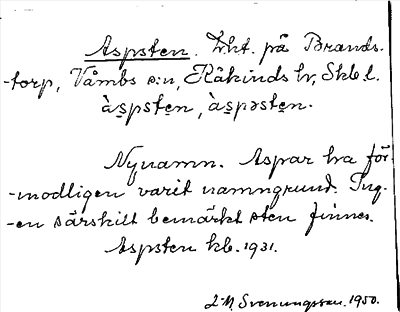 Aspsten. Lht. på Brands-
-torp, Våmbs s:n, Kåkinds hr, Skbl.
àspstęn, àspəstęn.
Nynamn. Aspar ha för-
-modligen varit namngrund. Ing-
-en särskilt bemärkt sten finnes.
Aspsten kb. 1931.
Svenungsson. 1950.